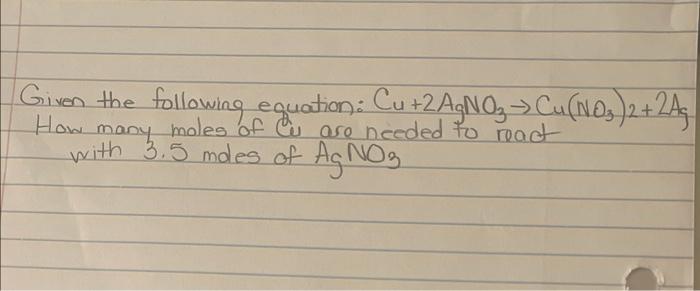 Given the following equation: Cu+2AgNO₃→Cu(NO₃)2+2Ag
How many moles of Cu are needed to react
with 3.5 moles of AgNO₃